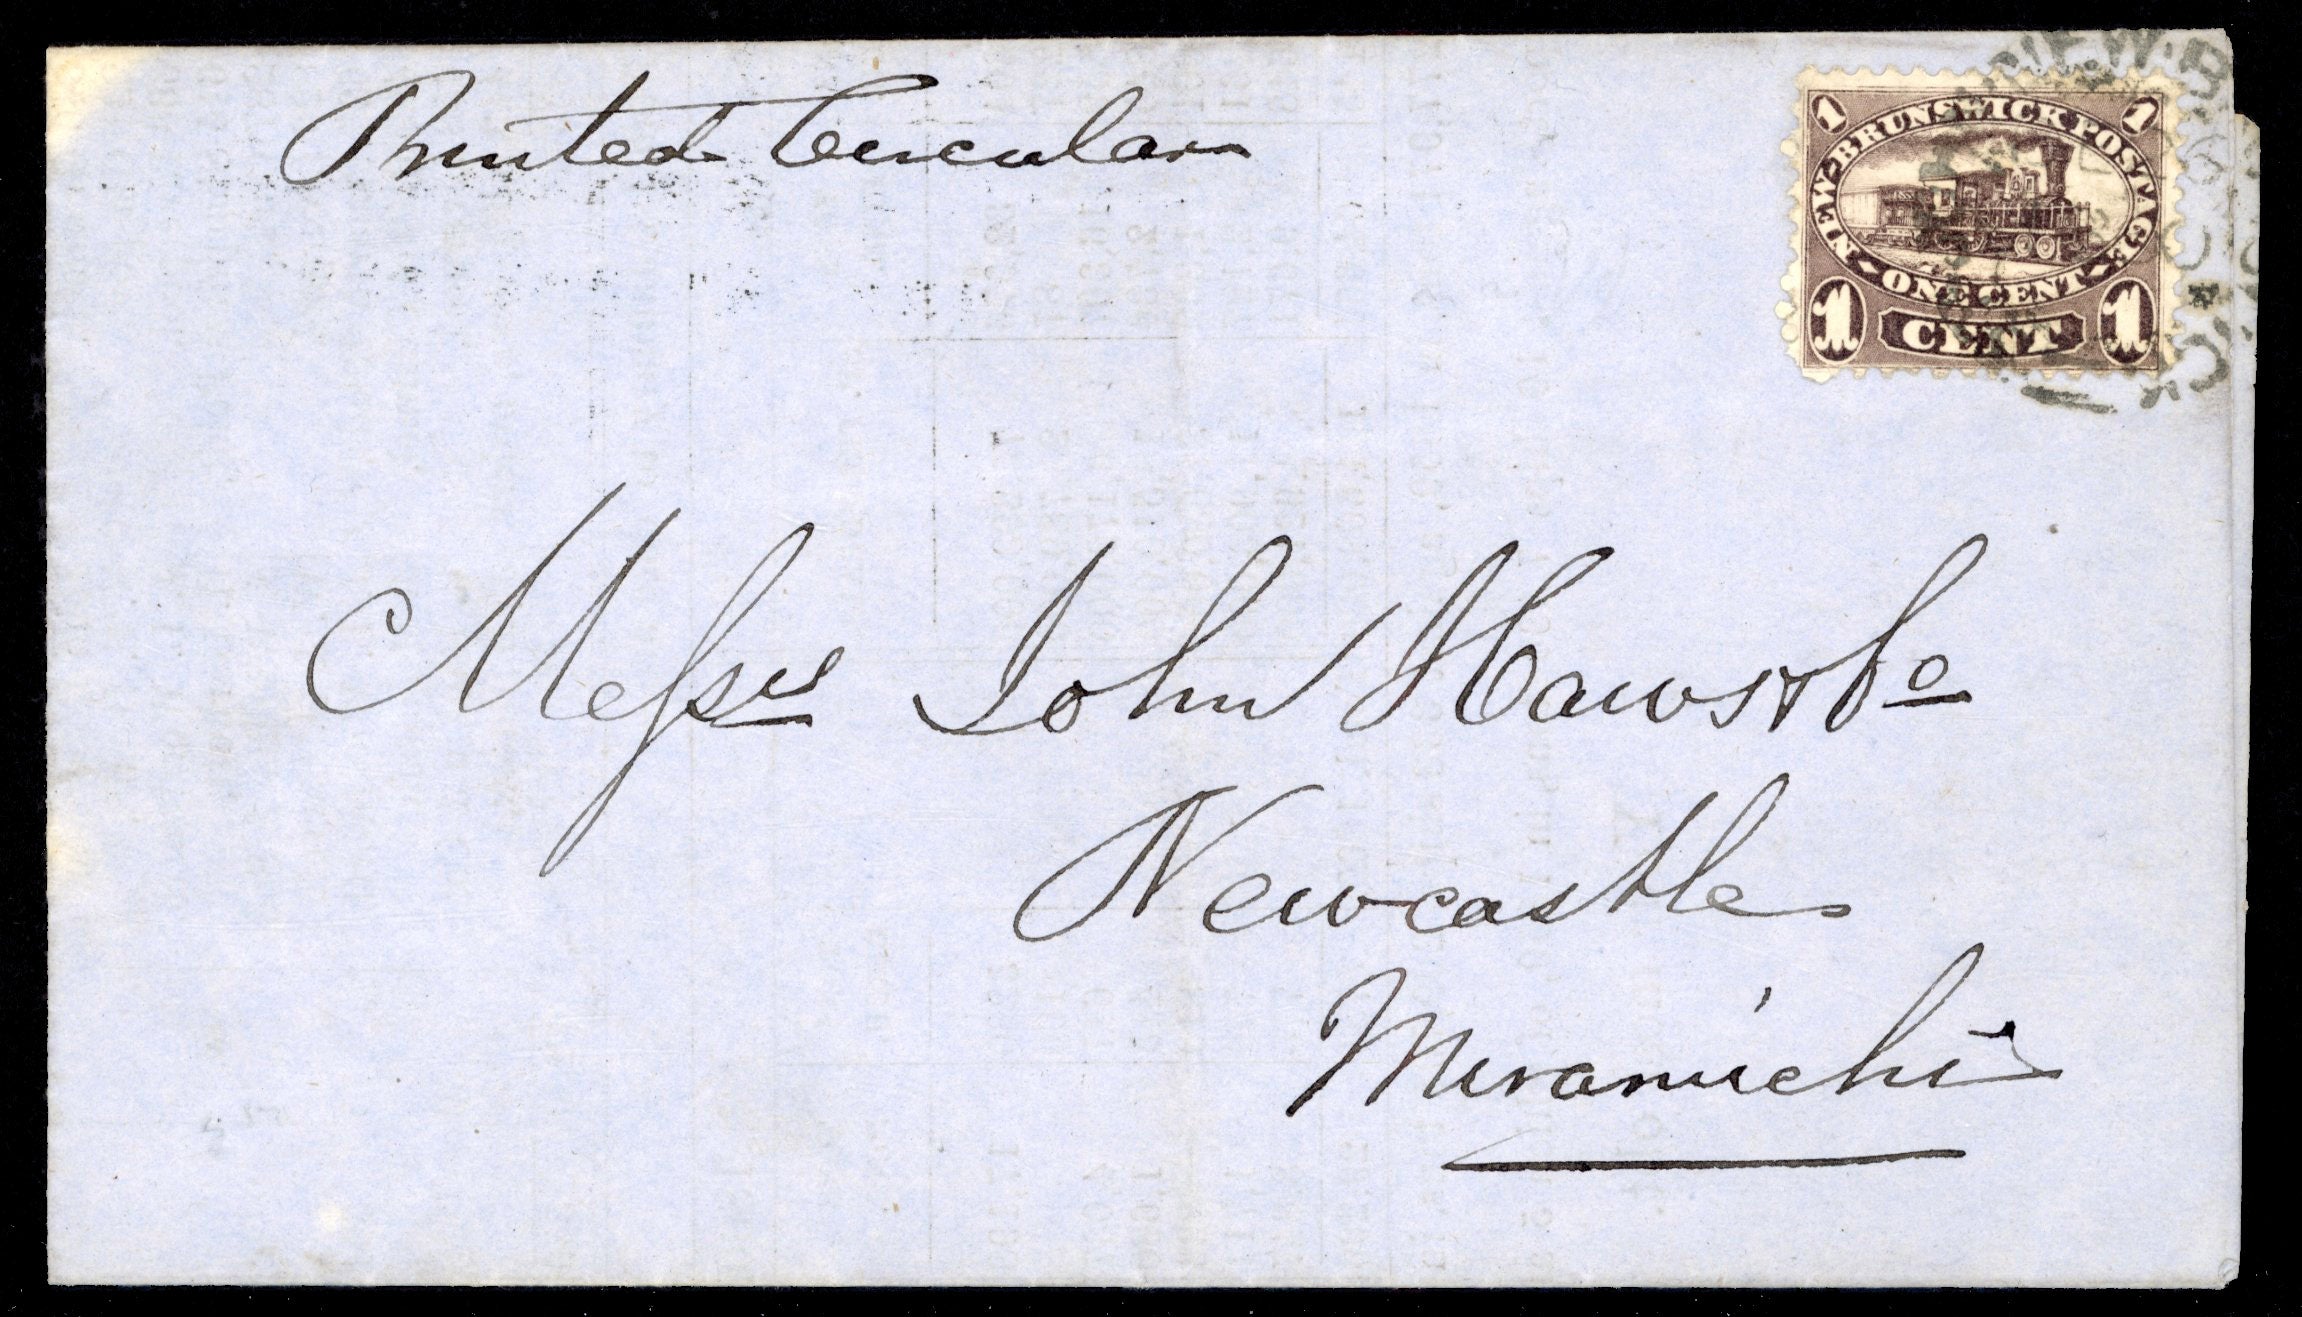 Printed Circular
1 NEW BRUNSWICK POSTAGE 1
ONE CENT
1 CENT 1
NEW B CK
Messrs John Haws & Co
Newcastle
Miramichi